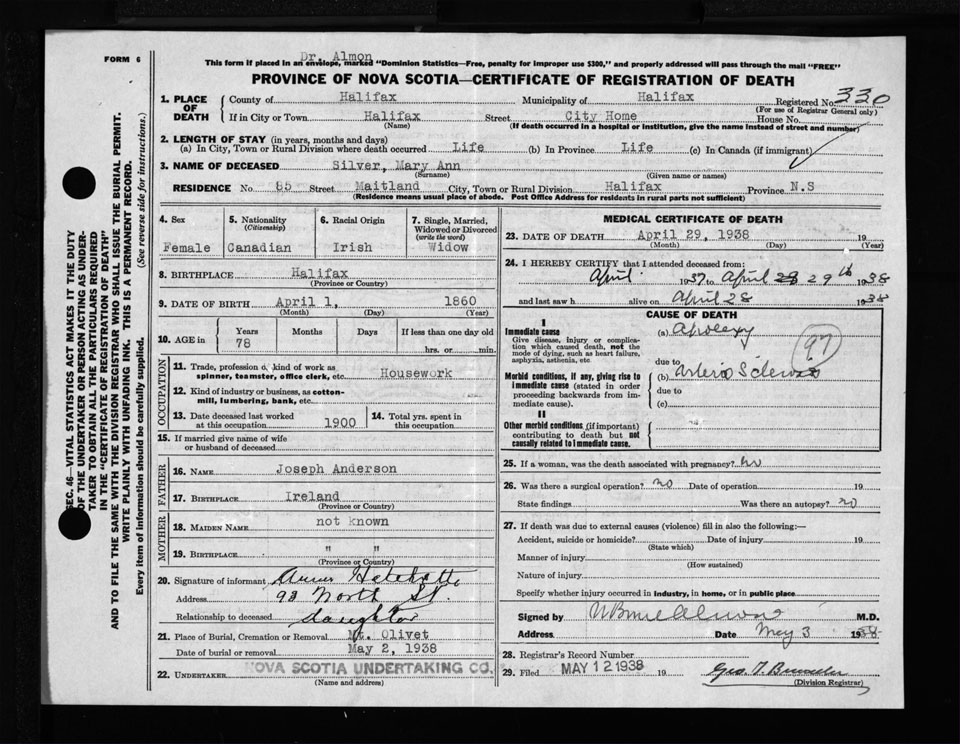 FORM 6
Dr. Almon
This form if placed in an envelope, marked "Dominion Statistics—Free, penalty for improper use $300," and properly addressed will pass through the mail "FREE"
PROVINCE OF NOVA SCOTIA—CERTIFICATE OF REGISTRATION OF DEATH
1. PLACE OF DEATH
County of Halifax Municipality of Halifax Registered No. 330
(For use of Registrar General only)
If in City or Town Halifax Street City Home House No.
(Name) (If death occurred in a hospital or institution, give the name instead of street and number)
2. LENGTH OF STAY (in years, months and days)
(a) In City, Town or Rural Division where death occurred Life (b) In Province Life (c) In Canada (if immigrant)
3. NAME OF DECEASED Silver, Mary Ann
(Surname) (Given name or names)
RESIDENCE No. 85 Street Maitland City, Town or Rural Division Halifax Province N.S
(Residence means usual place of abode. Post Office Address for residents in rural parts not sufficient)
4. Sex
Female
5. Nationality
(Citizenship)
Canadian
6. Racial Origin
Irish
7. Single, Married, Widowed or Divorced
(write the word)
Widow
8. BIRTHPLACE Halifax
(Province or Country)
9. DATE OF BIRTH April 1, 1860
(Month) (Day) (Year)
10. AGE in
Years Months Days If less than one day old
78 hrs. or min.
OCCUPATION
11. Trade, profession or kind of work as
spinner, teamster, office clerk, etc. Housework
12. Kind of industry or business, as cotton-
mill, lumbering, bank, etc.
13. Date deceased last worked
at this occupation 1900
14. Total yrs. spent in
this occupation
15. If married give name of wife
or husband of deceased
FATHER
16. NAME Joseph Anderson
17. BIRTHPLACE Ireland
(Province or Country)
MOTHER
18. MAIDEN NAME not known
19. BIRTHPLACE " "
(Province or Country)
20. Signature of informant
Address 93 North St.
Relationship to deceased daughter
21. Place of Burial, Cremation or Removal Mt. Olivet
Date of burial or removal May 2, 1938
22. UNDERTAKER NOVA SCOTIA UNDERTAKING CO.
(Name and address)
MEDICAL CERTIFICATE OF DEATH
23. DATE OF DEATH April 29, 1938 19
(Month) (Day) (Year)
24. I HEREBY CERTIFY that I attended deceased from:
April 1937 to April 28 29th 1938
and last saw h alive on April 28 1938
CAUSE OF DEATH
I
Immediate cause
Give disease, injury or complica-
tion which caused death, not the
mode of dying, such as heart failure,
asphyxia, asthenia, etc
(a) Apolexy
97
due to
Morbid conditions, if any, giving rise to
immediate cause (stated in order
proceeding backwards from im-
mediate cause).
(b)
due to
(c)
II
Other morbid conditions (if important)
contributing to death but not
causally related to immediate cause.
25. If a woman, was the death associated with pregnancy? no
26. Was there a surgical operation? no Date of operation 19
State findings Was there an autopsy? no
27. If death was due to external causes (violence) fill in also the following:—
Accident, suicide or homicide? Date of injury 19
(State which)
Manner of injury
(How sustained)
Nature of injury
Specify whether injury occurred in industry, in home, or in public place
Signed by M.D.
Address Date May 3 1938
28. Registrar's Record Number
29. Filed MAY 12 1938 19
(Division Registrar)
SEC. 46—VITAL STATISTICS ACT MAKES IT THE DUTY
OF THE UNDERTAKER OR PERSON ACTING AS UNDER-
TAKER TO OBTAIN ALL THE PARTICULARS REQUIRED
IN THE "CERTIFICATE OF REGISTRATION OF DEATH"
AND TO FILE THE SAME WITH THE DIVISION REGISTRAR WHO SHALL ISSUE THE BURIAL PERMIT.
WRITE PLAINLY WITH UNFADING INK. THIS IS A PERMANENT RECORD.
Every item of information should be carefully supplied. (See reverse side for instructions.)